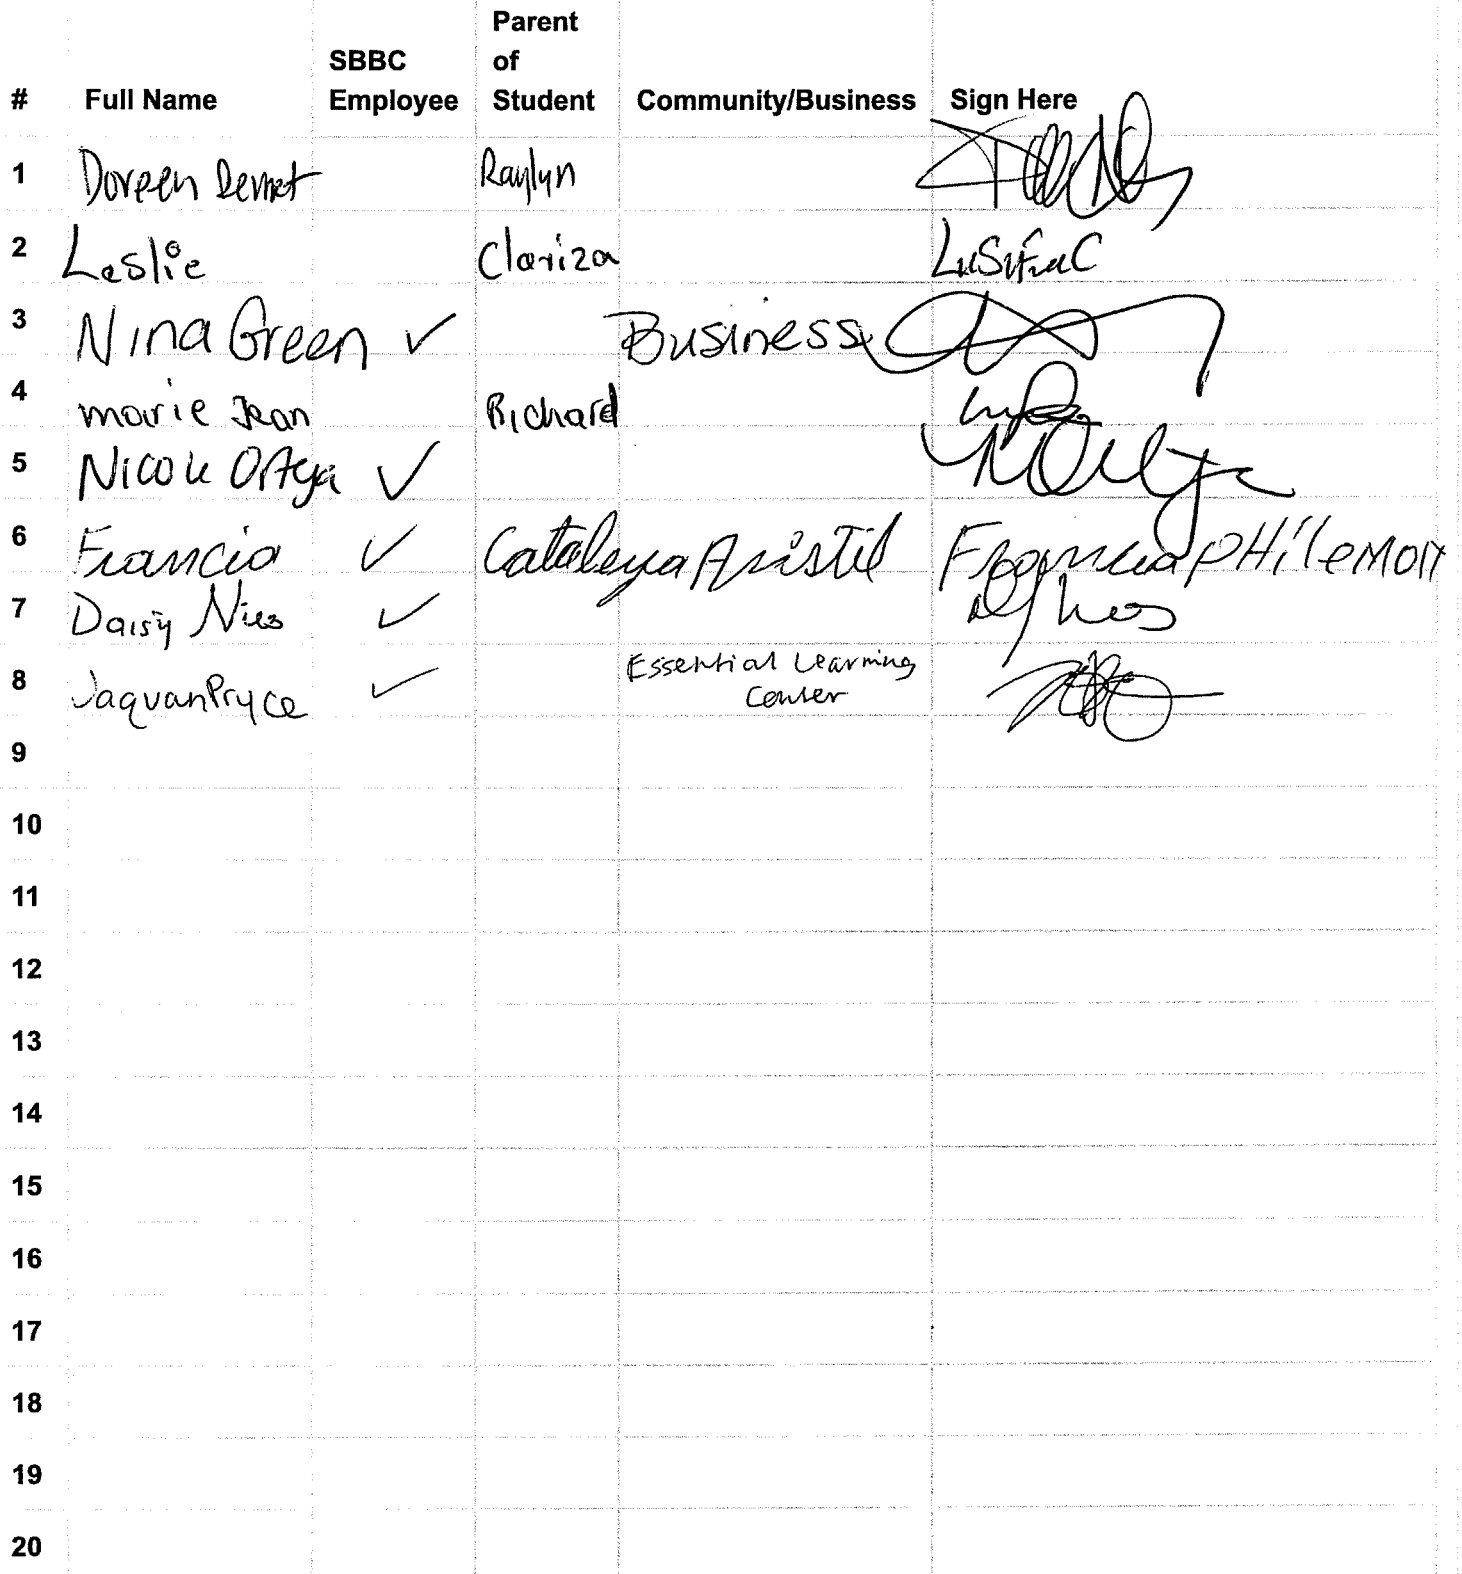 # Full Name SBBC Employee Parent of Student Community/Business Sign Here
1 Doreen Raylyn
2 Leslie Clariza
3 Nina Green ✓ Business
4 marie Jean Richard
5 Nicole Ortega ✓
6 Francia ✓ Cataleya Aristil Francia PHilemon
7 Daisy ✓
8 Jaquan Pryce ✓ Essential Learning Center
9
10
11
12
13
14
15
16
17
18
19
20